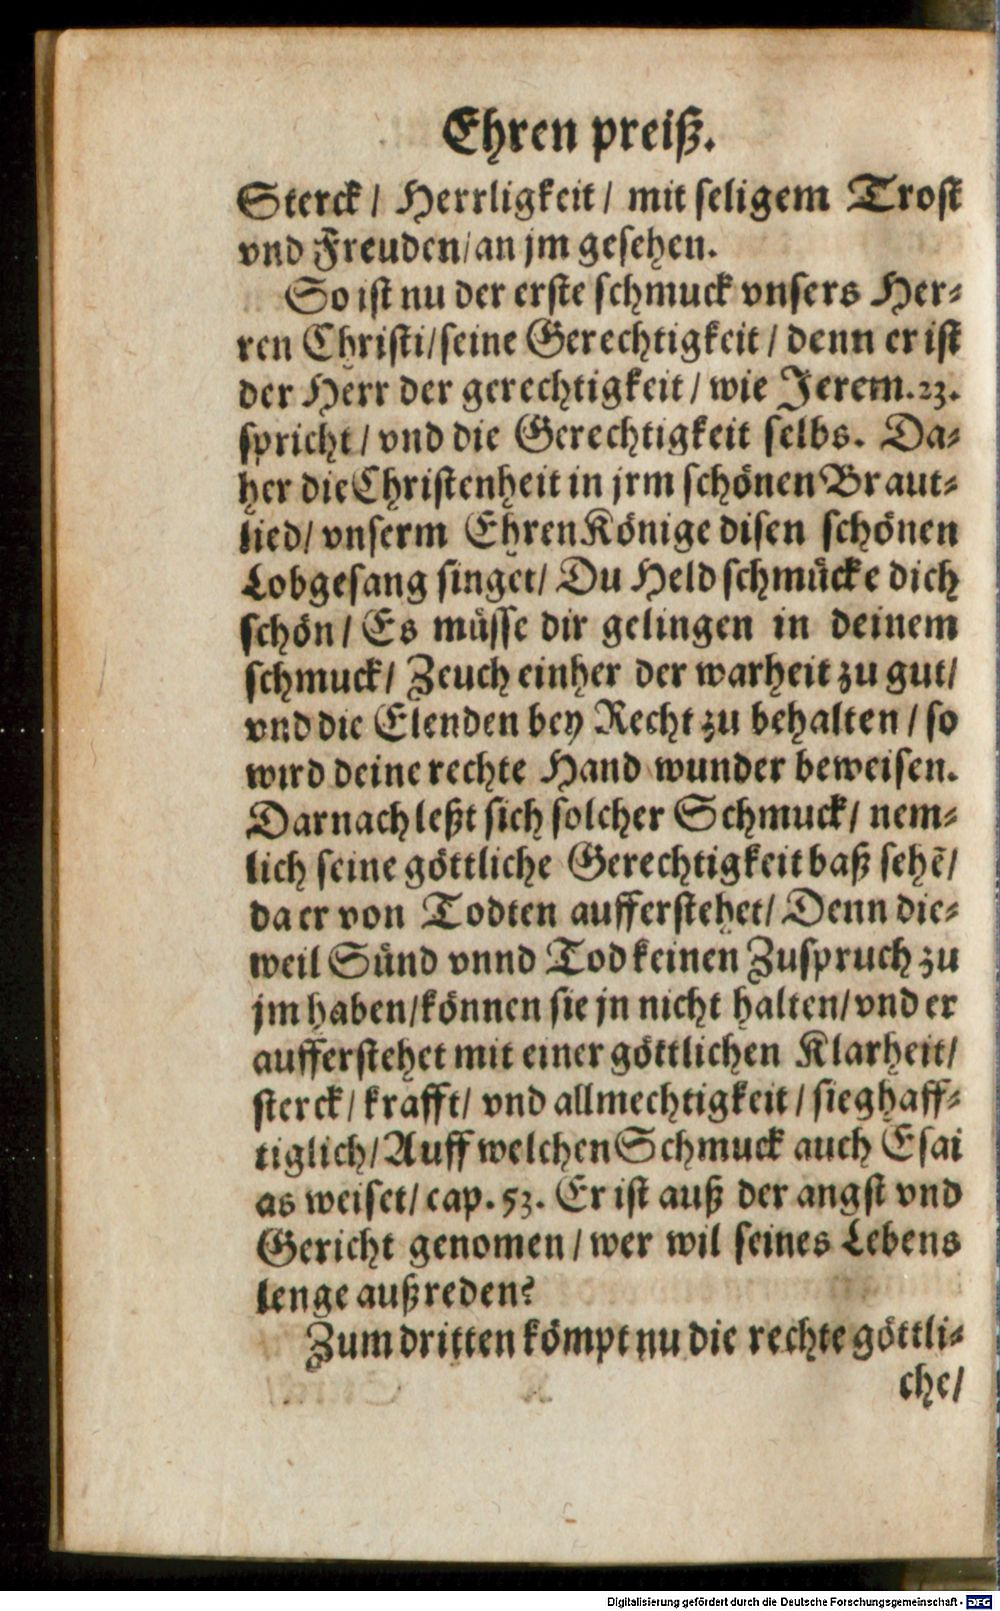 Ehren preiß.
Sterck / Herrligkeit / mit seligem Trost
vnd Freuden / an jm gesehen.
So ist nu der erste schmuck vnsers Her⸗
ren Christi / seine Gerechtigkeit / denn er ist
der Herr der gerechtigkeit / wie Jerem. 23.
spricht / vnd die Gerechtigkeit selbs. Da⸗
her die Christenheit in jrm schönen Braut⸗
lied / vnserm Ehren Könige disen schönen
Lobgesang singet / Du Held schmücke dich
schön / Es müsse dir gelingen in deinem
schmuck / Zeuch einher der warheit zu gut /
vnd die Elenden bey Recht zu behalten / so
wird deine rechte Hand wunder beweisen.
Darnach leßt sich solcher Schmuck / nem⸗
lich seine göttliche Gerechtigkeit baß sehē /
da er von Todten aufferstehet / Denn die⸗
weil Sünd vnnd Tod keinen Zuspruch zu
jm haben / können sie jn nicht halten / vnd er
aufferstehet mit einer göttlichen Klarheit /
sterck / krafft / vnd allmechtigkeit / sieghaff⸗
tiglich / Auff welchen Schmuck auch Esai
as weiset / cap. 53. Er ist auß der angst vnd
Gericht genomen / wer wil seines Lebens
lenge außreden?
Zum dritten kömpt nu die rechte göttli⸗
che /
Digitalisierung gefördert durch die Deutsche Forschungsgemeinschaft - DFG